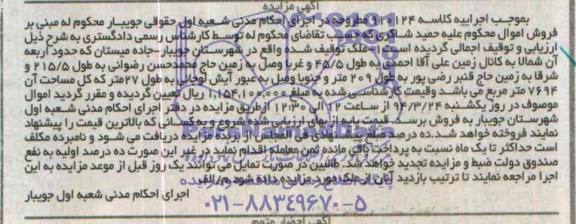 آگهی مزایده
بموجب اجراییه کلاسه ۹۱۰۱۲۴ مطروحه در اجرای احکام مدنی شعبه اول حقوقی جویبار محکوم له مبنی بر
فروش اموال محکوم علیه حمید شاکری که حسب تقاضای محکوم له توسط کارشناس رسمی دادگستری به شرح ذیل
ارزیابی و توقیف اجمالی گردیده است ۱- ملک توقیف شده واقع در شهرستان جویبار -جاده میستان که حدود اربعه
آن شمالا به کانال زمین علی آقا احمدی به طول ۴۵/۵ و غربا وصل به زمین حاج محمدحسن رضوانی به طول ۲۱۵/۵ و
شرقا به زمین حاج قنبر رضی پور به طول ۲۰۹ متر و جنوبا وصل به عبور آیش لوخانی به طول ۲۷متر که کل مساحت آن
۷۶۹۴ متر مربع می باشد وقیمت کارشناسی شده به مبلغ ۱,۱۵۴,۱۰۰,۰۰۰ ریال تعیین گردیده و مقرر گردید اموال
موصوف در روز یکشنبه ۹۴/۳/۲۴ از ساعت ۱۲ الی ۱۲:۳۰ ازطریق مزایده در دفتر اجرای احکام مدنی شعبه اول
شهرستان جویبار به فروش برسد قیمت پایه از بهای ارزیابی شده شروع و به کسانی که بالاترین قیمت را پیشنهاد
نمایند فروخته خواهد شد.ده درصد از مزایده دریافت می شود و نامبرده مکلف
است حداکثر تا یک ماه نسبت به پرداخت باقی مانده ثمن معامله اقدام نماید در غیر این صورت ده درصد اولیه به نفع
صندوق دولت ضبط و مزایده تجدید خواهد شد. طالبین در صورت تمایل می توانند یک روز قبل از موعد مزایده به این
اجرا مراجعه نمایند تا ترتیب بازدید آنان از ملک مورد مزایده داده شود م/الف
اجرای احکام مدنی شعبه اول جویبار
۰۲۱-۸۸۳۴۹۶۷۰-۵
آگهی احضار متهم